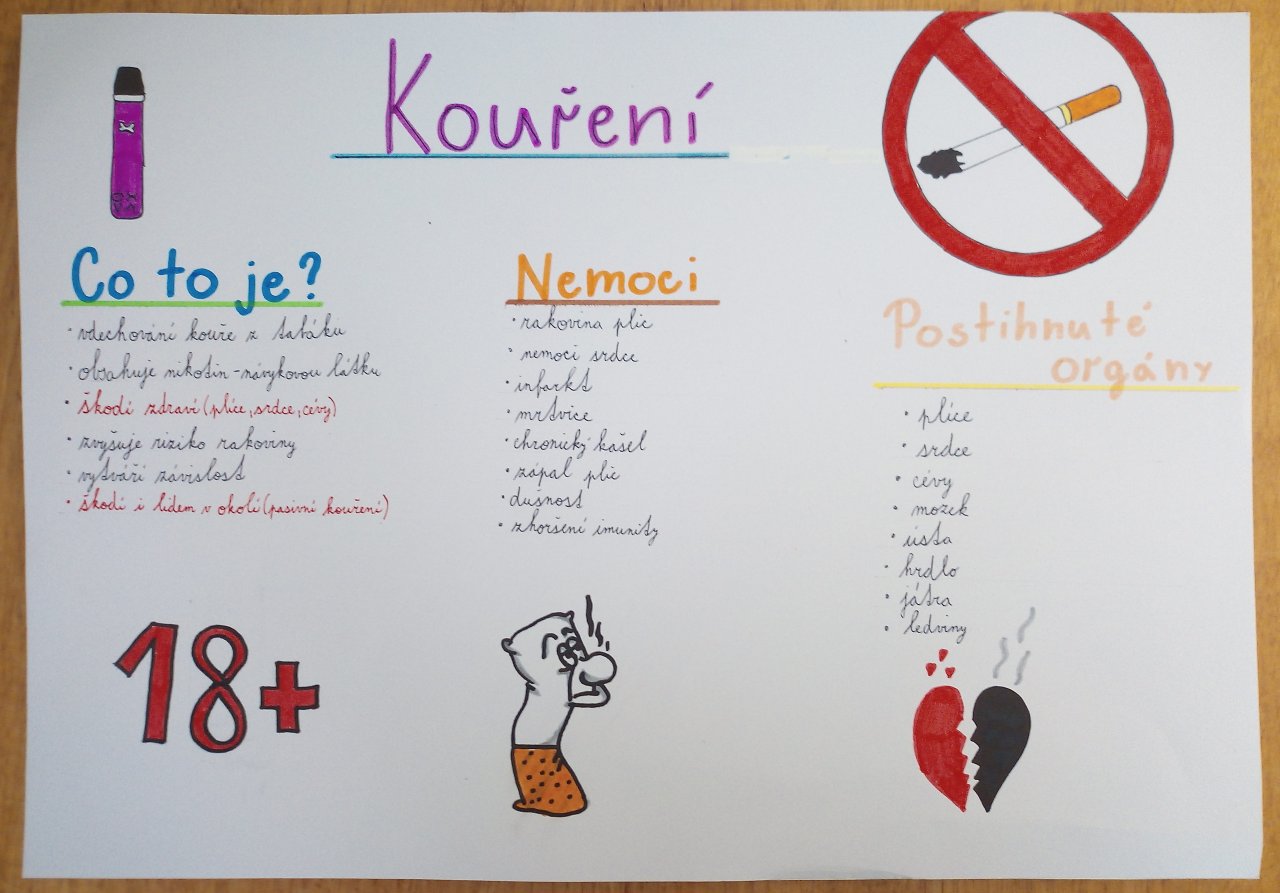 Kouření
Co to je?
· vdechování kouře z tabáku
· obsahuje nikotin - návykovou látku
· škodí zdraví (plíce, srdce, cévy)
· zvyšuje riziko rakoviny
· vytváří závislost
· škodí i lidem v okolí (pasivní kouření)
18+
Nemoci
· rakovina plic
· nemoci srdce
· infarkt
· mrtvice
· chronický kašel
· zápal plic
· dušnost
· zhoršení imunity
Postihnuté
orgány
· plíce
· srdce
· cévy
· mozek
· ústa
· hrdlo
· játra
· ledviny